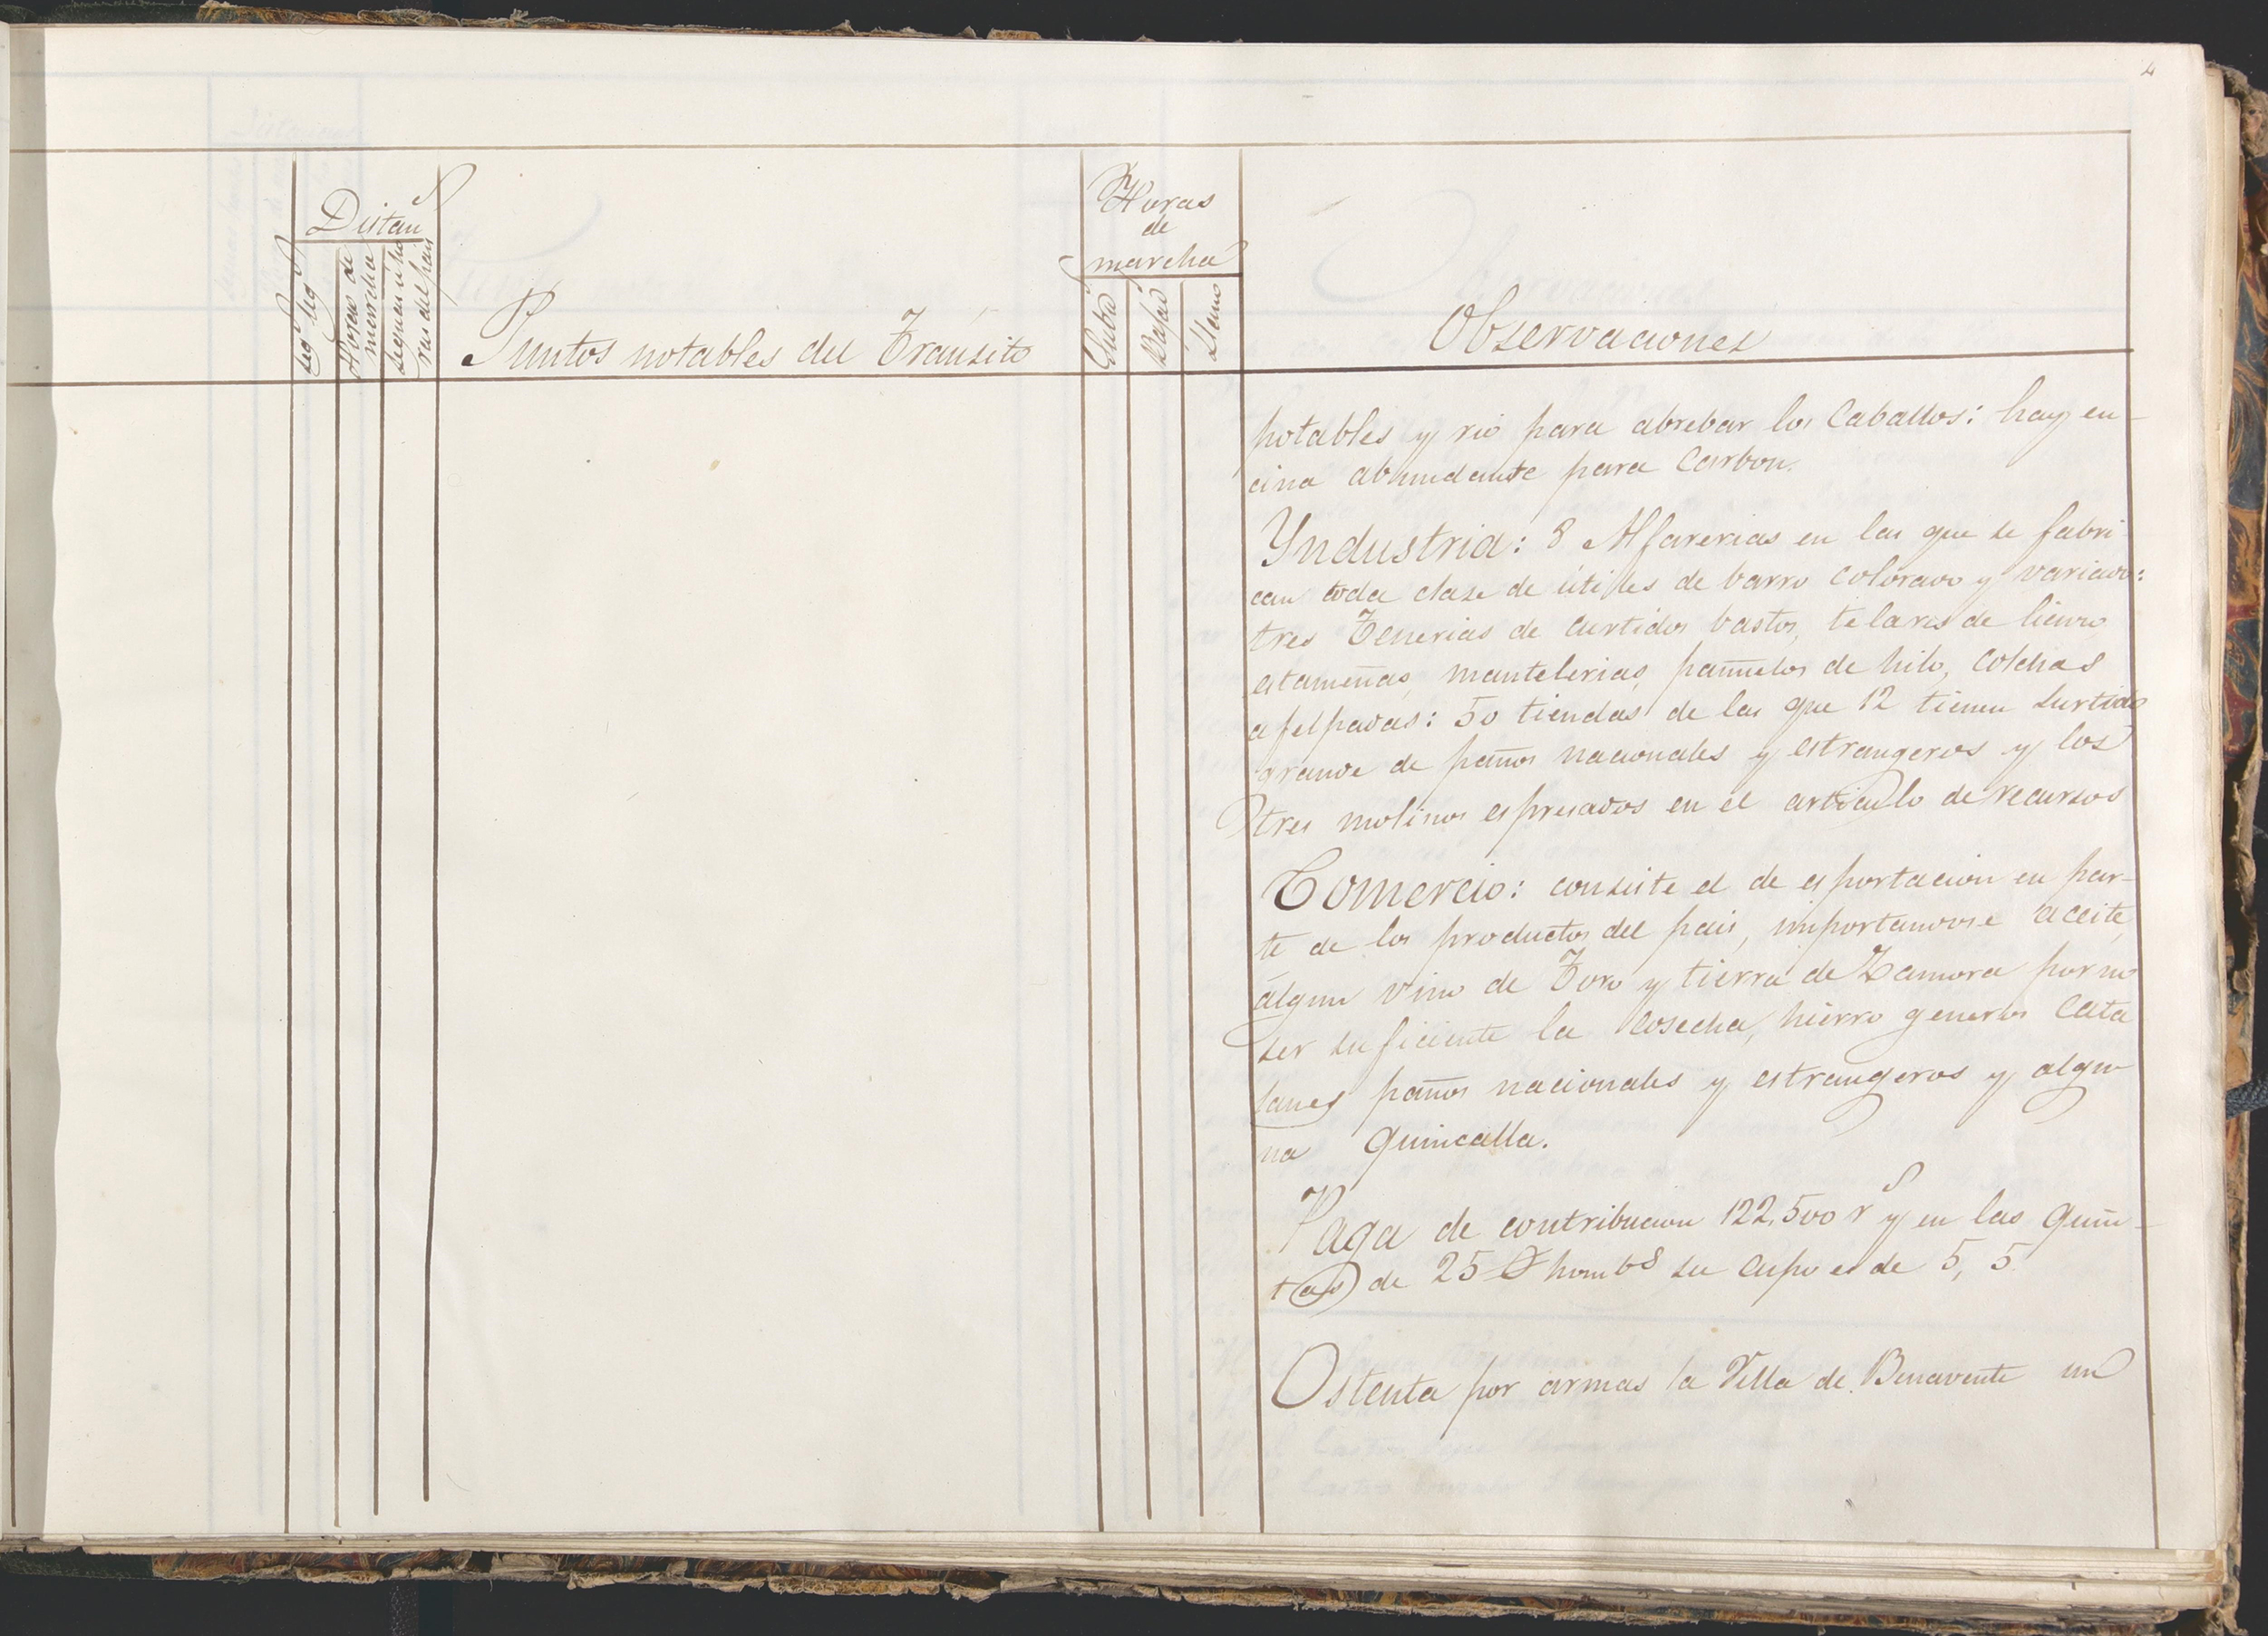 4
Distan^s
Leg^s leg^s
Horas de
marcha
Leguas ú ho
ras del pais
Puntos notables del Tránsito
Horas
de
marcha
Subid^s
Bajad^s
Llano
Observaciones
potables y rio para abrebar los Caballos: hay en-
cina abundante para Carbon.
Yndustria: 8 Alfarerias en las que se fabri
can toda clase de útiles de barro colorado y variado:
tres Tenerias de curtidos bastos, telares de lienzo
estameñas, mantelerias, pañuelos de hilo, colchas
afelpadas: 50 tiendas de las que 12 tienen surtido
grande de paños nacionales y estrangeros y los
tres molinos espresados en el articulo de recursos
Comercio: consiste el de esportacion en par-
te de los productos del pais, importandose aceite,
algun vino de Toro y tierra de Zamora por no
ser suficiente la cosecha, hierro generos Cata
lanes paños nacionales y estrangeros y algu
na Quincalla.
Paga de contribucion 122,500 r^s y en las Quin-
tas de 25 homb^s su cupo es de 5, 5
Ostenta por armas la Villa de Benavente un